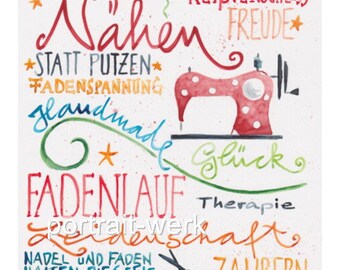 Nähen
FREUDE
STATT PUTZEN
FADENSPANNUNG
Handmade
Glück
FADENLAUF
Therapie
portrait-werk
Leidenschaft
NADEL UND FADEN
ZAUBERN